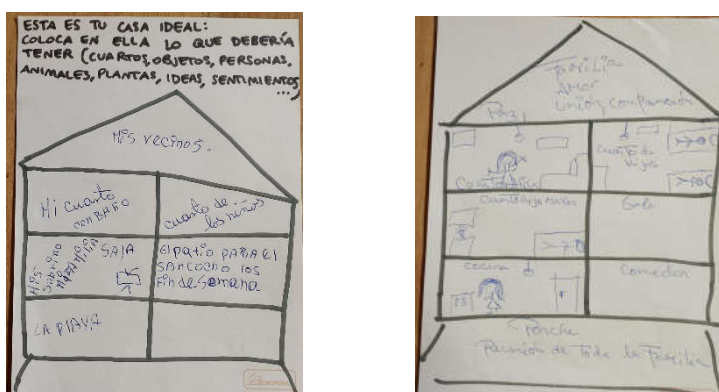 ESTA ES TU CASA IDEAL:
COLOCA EN ELLA LO QUE DEBERÍA
TENER (CUARTOS, OBJETOS, PERSONAS,
ANIMALES, PLANTAS, IDEAS, SENTIMIENTOS
...)
Mis vecinos.
Mi cuarto
con BAÑO
cuarto de
los niños
Mis
Sobrino
SALA
El patio PARA El
SANCOCHO los
Fin de Semana
LA PlAYA
Familia
AMOR
Unión, comprensión
Paz,
Cuarto de
hijos
Sala
Cocina
Comedor
Porche
Reunión de Toda la Familia